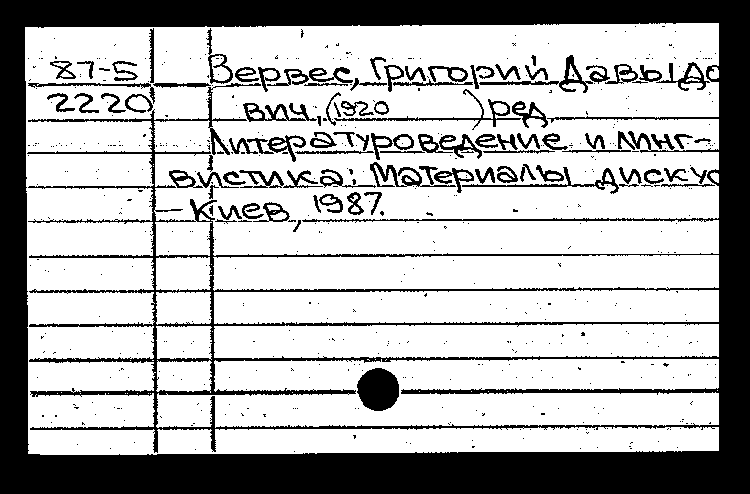 87-5 Вервес, Григорий Давыдо
2220 вич, (1920 ) ред.
Литературоведение и линг-
вистика: Материалы дискус
– Киев, 1987.